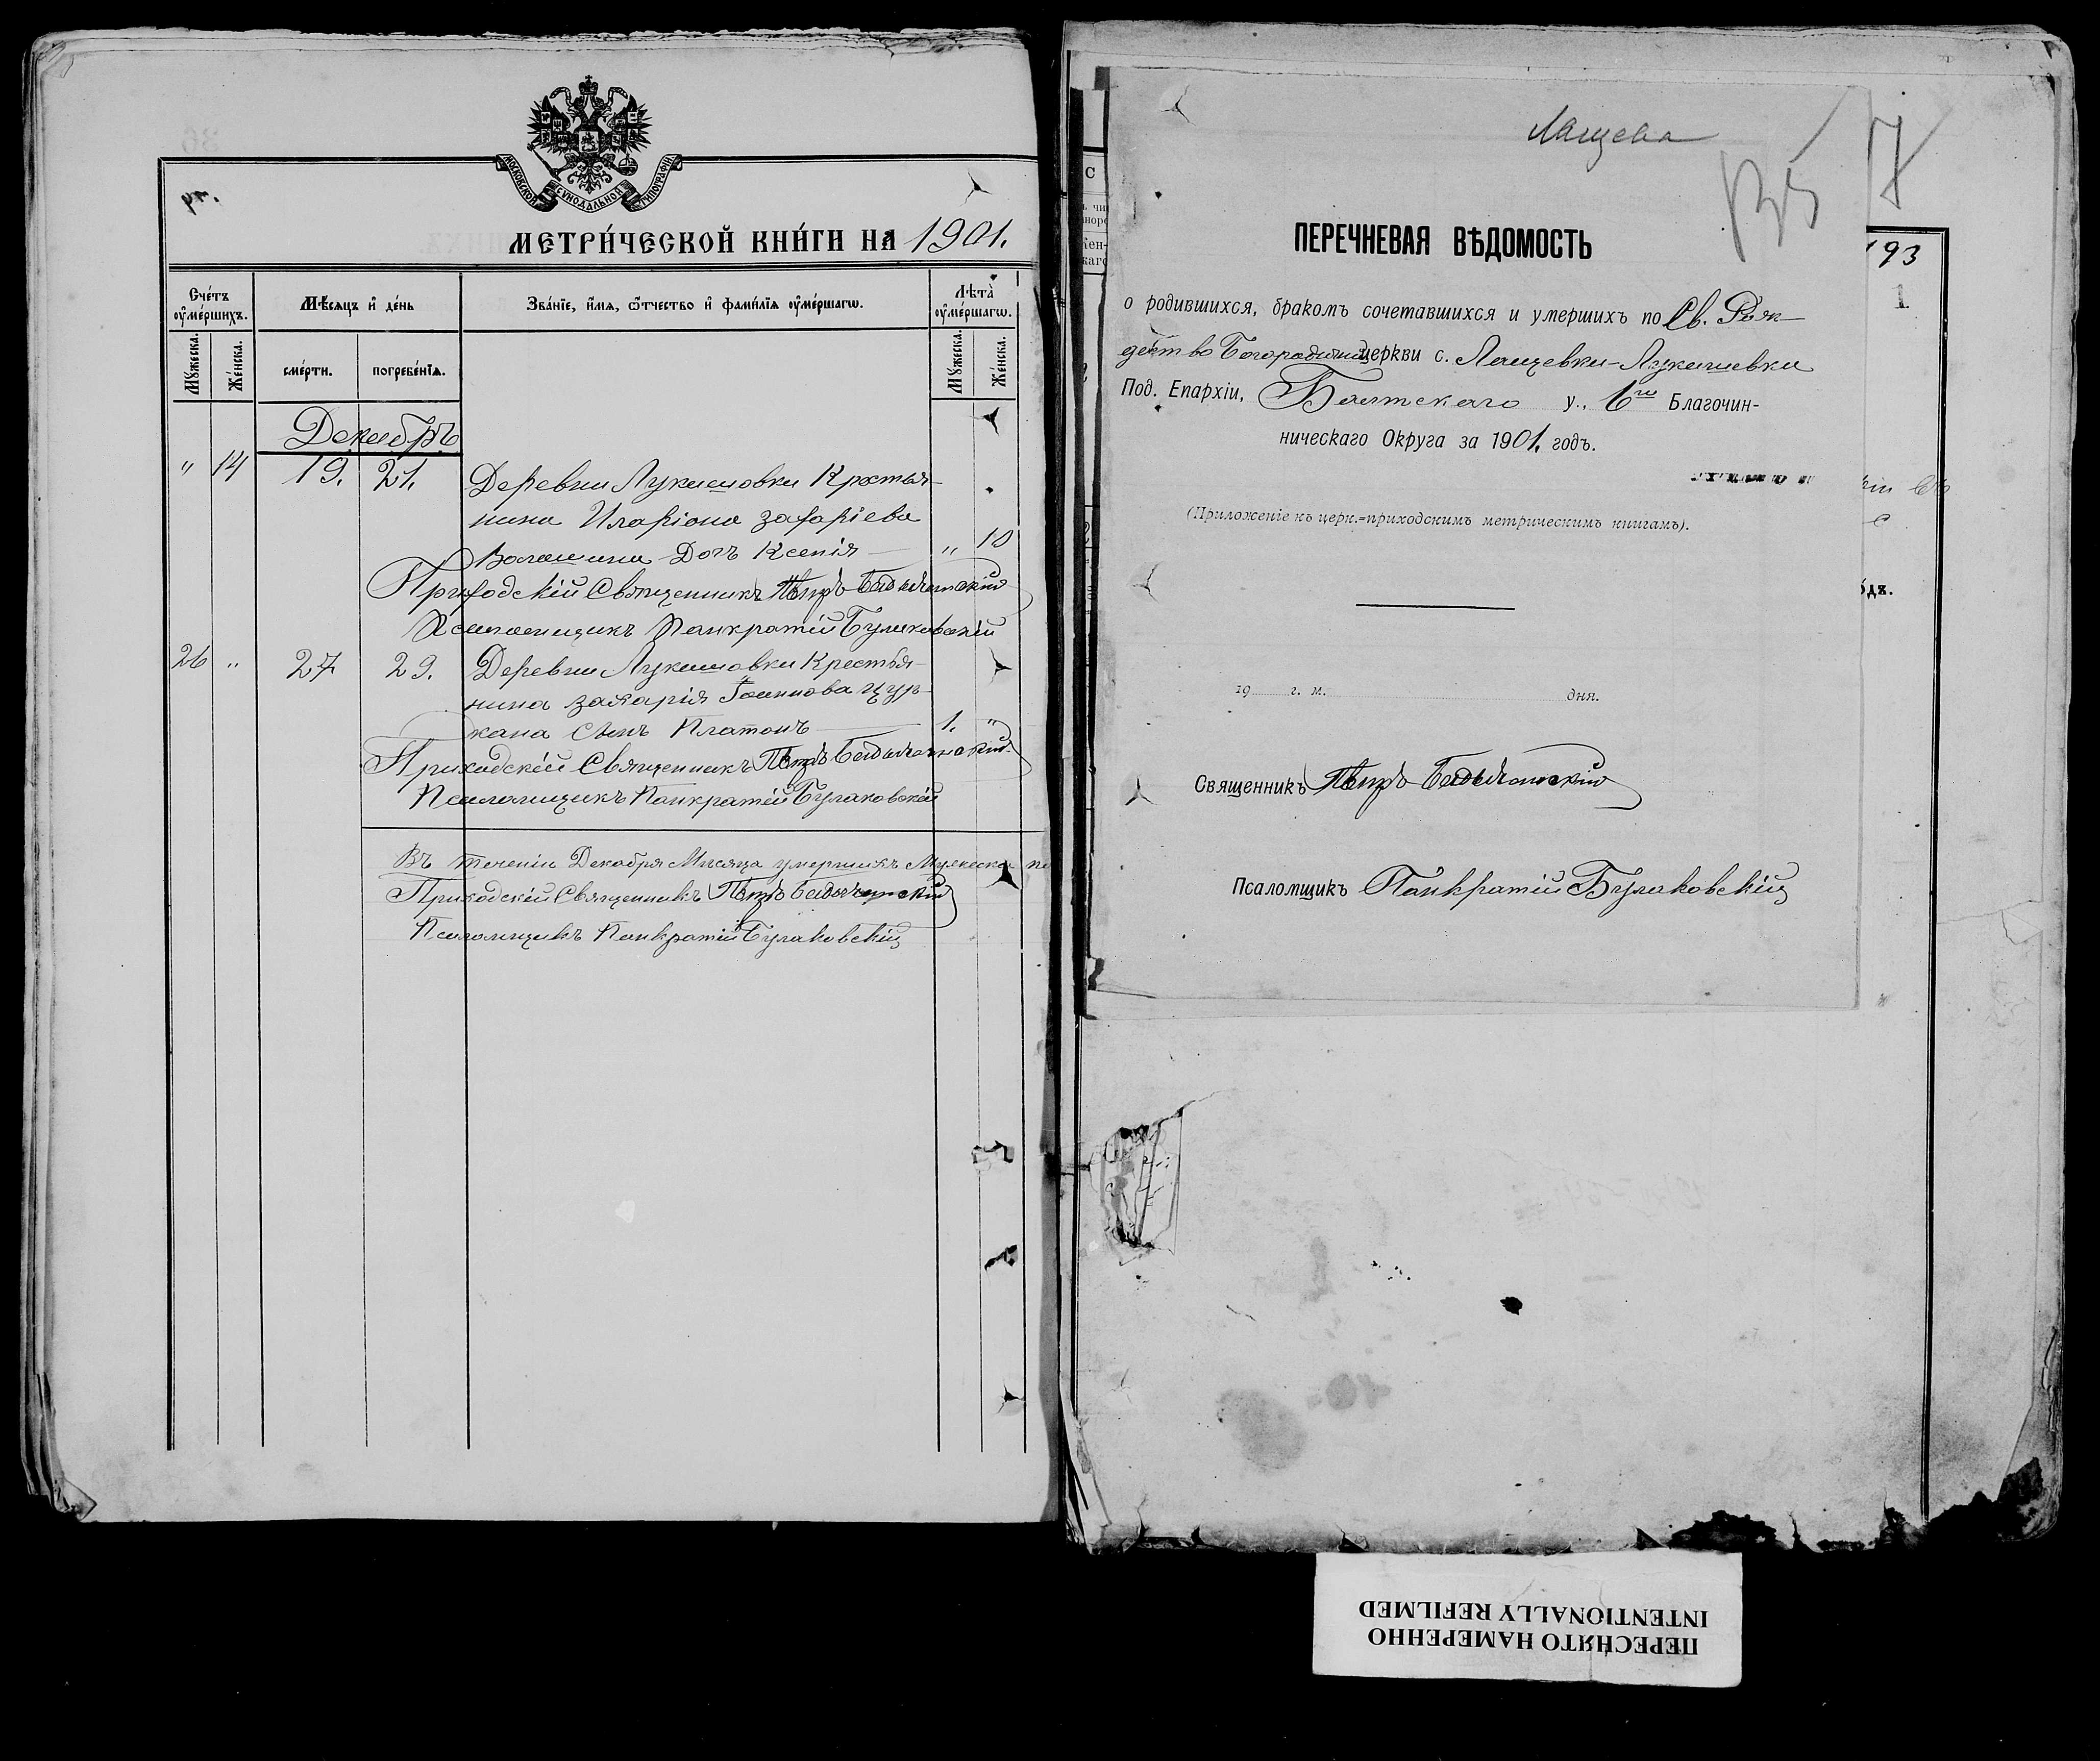 МОСКОВСКОЙ СѴНОДАЛЬНОЙ ТИПОГРАФІИ
МЕТРИ́ЧЕСКОЙ КНИ́ГИ НА 1901.
Сче́тъ ᲂу҆ме́ршихъ.
Мѣ́сяцъ и҆ де́нь
Зва́нїе, и҆́мѧ, ѻ҆́тчество и҆ фами́лїѧ ᲂу҆ме́ршагѡ.
Лѣ́та ᲂу҆ме́ршагѡ.
Мꙋ́жеска.
Же́нска.
сме́рти.
погребе́нїѧ.
Мꙋ́жеска.
Же́нска.
Декабрь
" 14 19. 21. Деревни Лукашовки Крестья-
нина Иларіона Захаріева
Волошина Дочь Ксенія " 10
Приходскій Священникъ Петръ
Псаломщикъ Панкратій Булаковскій
26 " 27 29. Деревни Лукашовки Крестья-
нина Захарія Іоаннова Цур-
кана Сынъ Платонъ 1. "
Приходскій Священникъ Петръ
Псаломщикъ Панкратій Булаковскій
Въ теченіи Декабря Мѣсяца умершихъ Мужеска по
Приходскій Священникъ Петръ
Псаломщикъ Панкратій Булаковскій
Лащева
7
193
1
ПЕРЕЧНЕВАЯ ВѢДОМОСТЬ
о родившихся, бракомъ сочетавшихся и умершихъ по Св. Рож-
дество Богородичной церкви с. Лащевки-Лукашевки
Под. Епархіи, Балтскаго у., 6го Благочин-
ническаго Округа за 1901. годъ.
(Приложеніе къ церк.=приходскимъ метрическимъ книгамъ).
19 г. м. дня.
Священникъ Петръ
Псаломщикъ Панкратій Булаковскій
ПЕРЕСНЯТО НАМЕРЕННО
INTENTIONALLY REFILMED